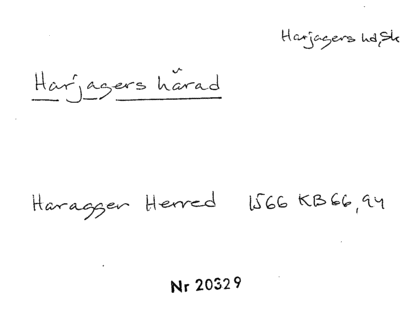 Harjagers hd, Sk
Harjagers härad
Haragger Herred 1566 KB 66, 94
Nr 20329